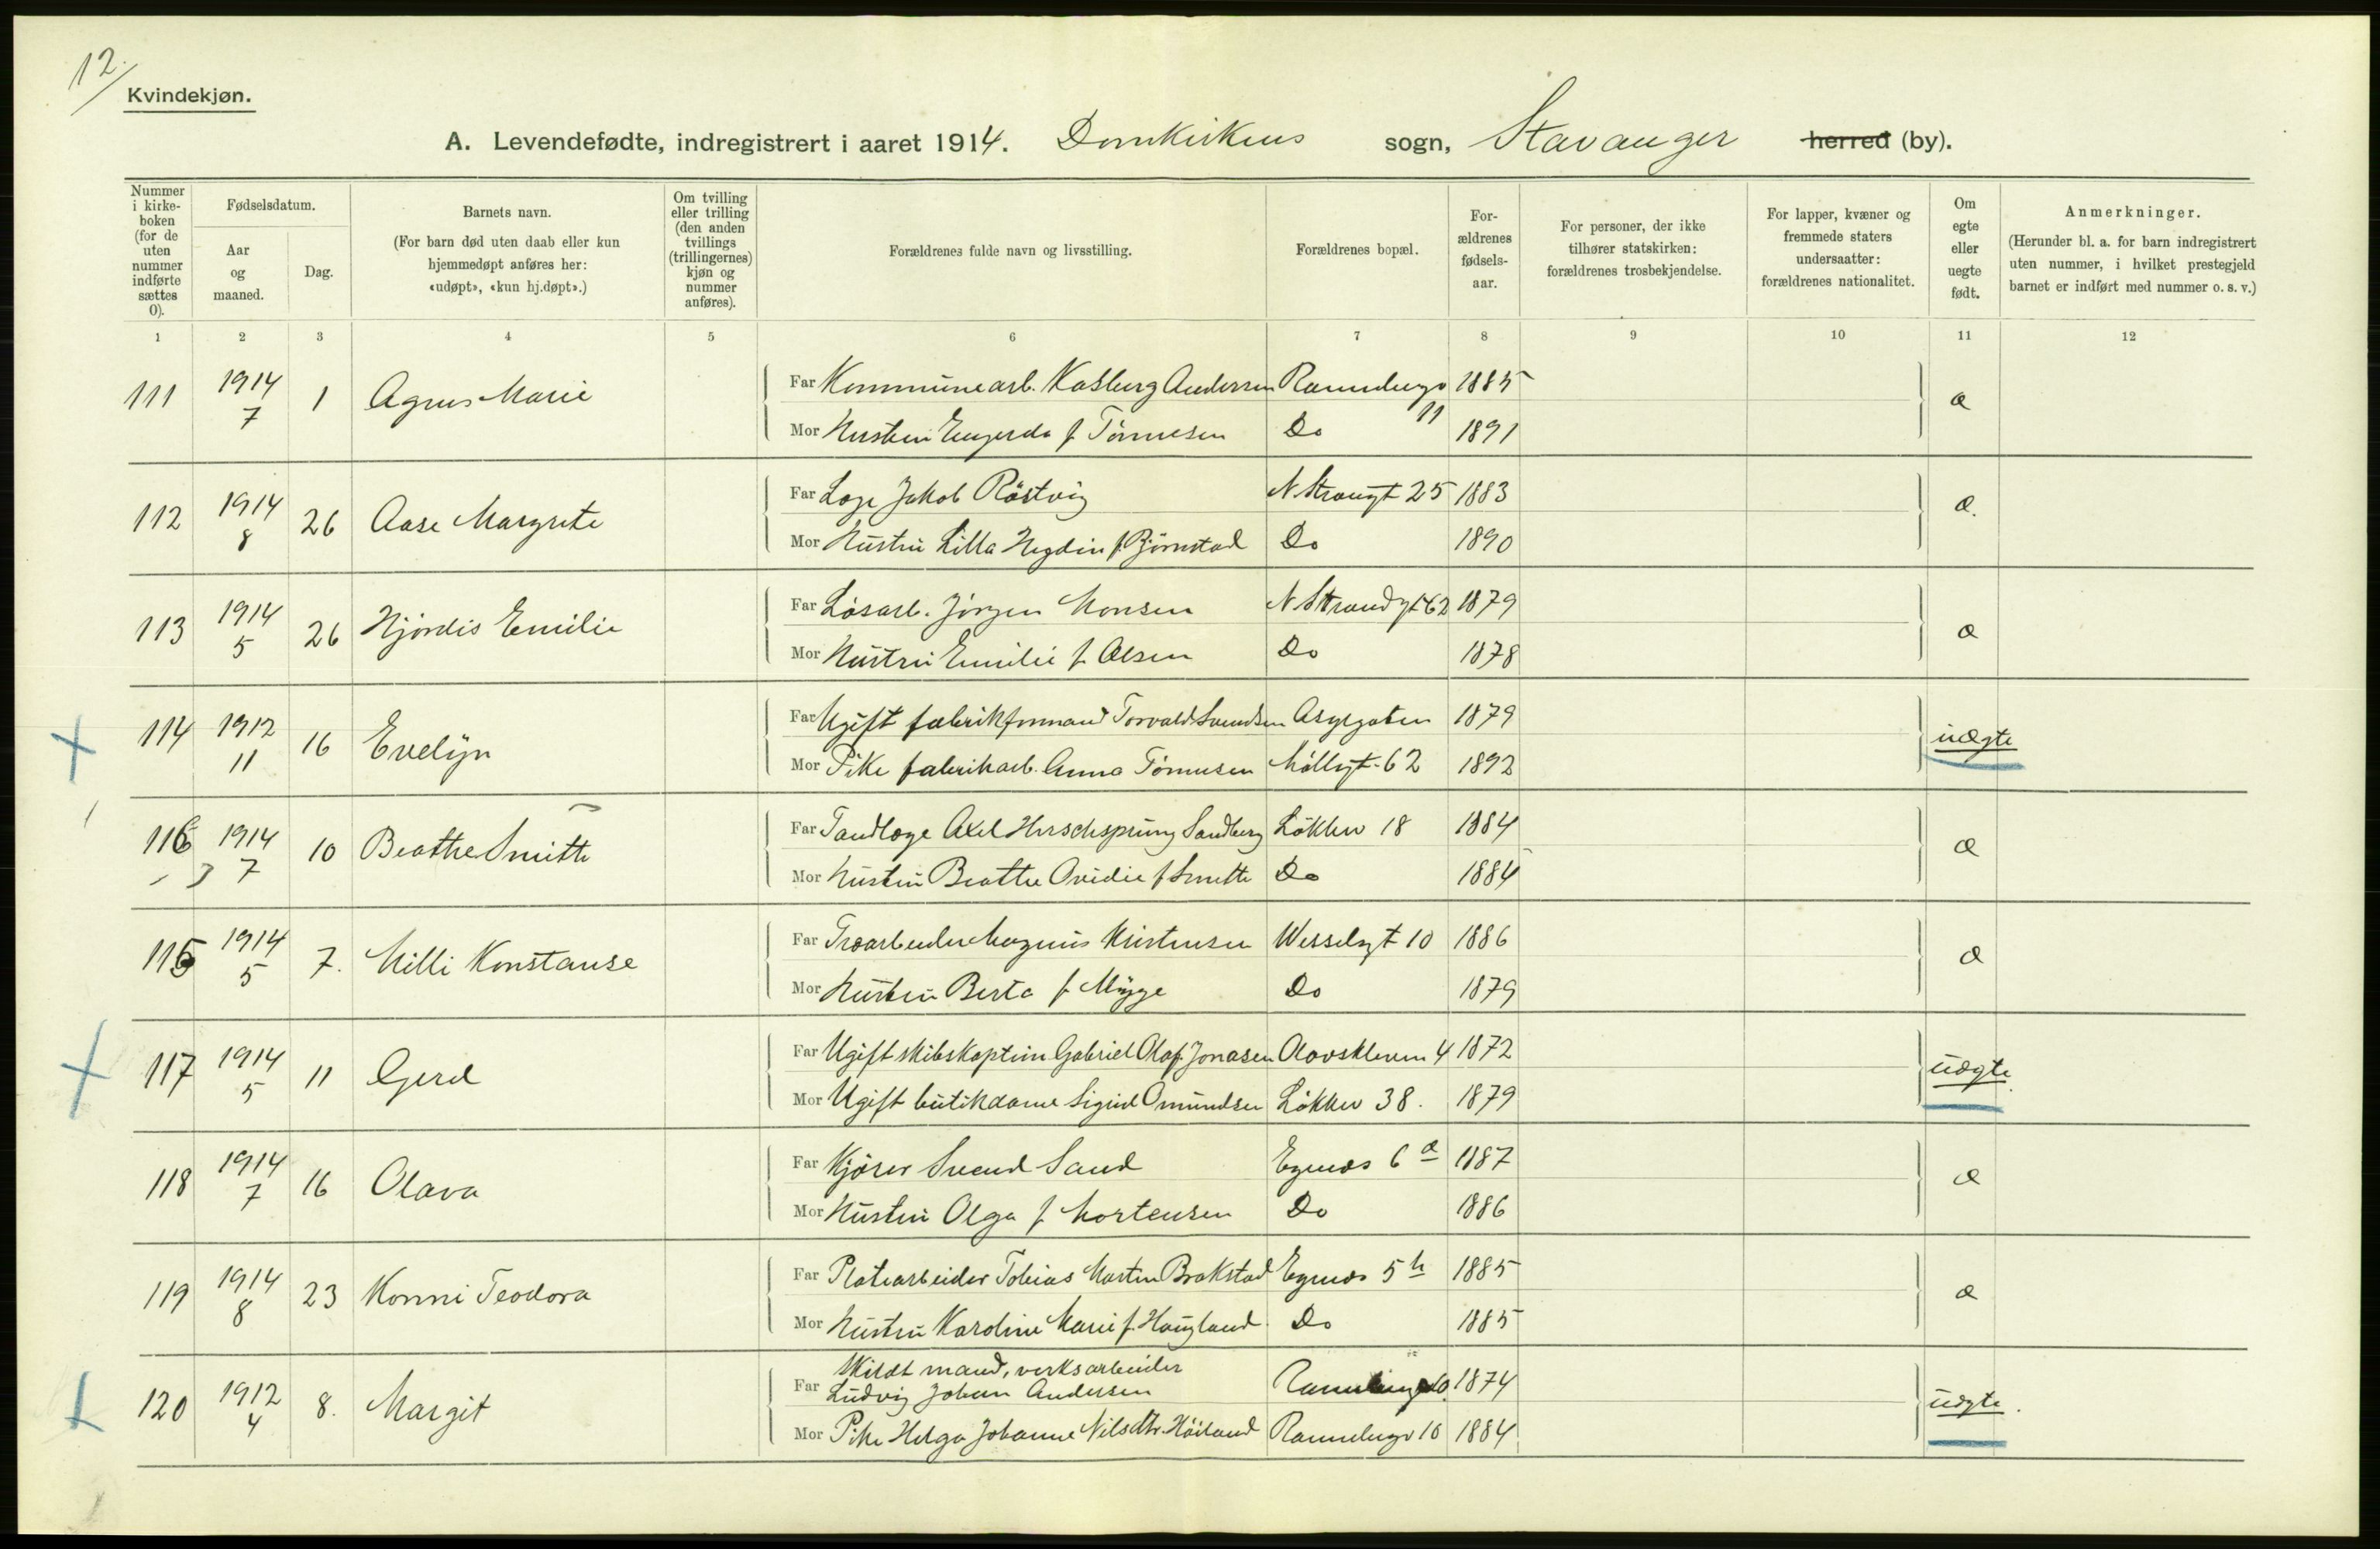 12.
Kvindekjøn.
A. Levendefødte, indregistrert i aaret 1914. Domkirkens sogn, Stavanger herred (by).
Nummer i kirke-boken (for de uten nummer indførte sættes 0).
Fødselsdatum.
Aar og maaned.
Dag.
Barnets navn.
(For barn død uten daab eller kun hjemmedøpt anføres her: «udøpt», «kun hj.døpt».)
Om tvilling eller trilling (den anden tvillings (trillingernes) kjøn og nummer anføres).
Forældrenes fulde navn og livsstilling.
Forældrenes bopæl.
For-ældrenes fødsels-aar.
For personer, der ikke tilhører statskirken: forældrenes trosbekjendelse.
For lapper, kvæner og fremmede staters undersaatter: forældrenes nationalitet.
Om egte eller uegte født.
Anmerkninger.
(Herunder bl. a. for barn indregistrert uten nummer, i hvilket prestegjeld barnet er indført med nummer o. s. v.)
1 2 3 4 5 6 7 8 9 10 11 12
111 1914 7 1 Agnes Marie
Far Kommunearb. Kasberg Andersen 1885
Mor Hustru f. Tønnesen Do 11 1891
æ
112 1914 8 26 Aase Margrete
Far Jakob Röstvig N. Strandgt 25 1883
Mor Hustru Lilla f. Bjørnstad Do 1890
æ.
113 1914 5 26 Hjørdis Emilie
Far Løsarb. Jørgen Monsen N. Strandgt 62 1879
Mor Hustru Emilie f. Olsen Do 1878
æ
114 1912 11 16 Evelyn
Far Ugift fabrikformand Torvald Svendsen Asylgaten 1879
Mor Pike fabrikarb. Anna Tønnesen Møllegt. 62 1892
uægte
116 1914 7 10 Beathe Smith
Far Tandlæge Axel Herschsprung Sandberg Løkkev 18 1884
Mor Hustru Beathe Ovidie f. Do 1884
æ
115 1914 5 7. Milli Konstanse
Far Træarbeider Magnus Kristensen Wesselsgt 10 1886
Mor Hustru Berta f. Mygge Do 1879
æ
117 1914 5 11 Gerd
Far Ugift skibskaptein Gabriel Olaf Jonasen Olavskleven 4 1872
Mor Ugift butikdame Sigrid Omundsen Løkkev 38. 1879
uægte.
118 1914 7 16 Olava
Far Kjører Svend Sand Egenæs 6 a 1887
Mor Hustru Olga f. Mortensen Do 1886
æ
119 1914 8 23 Konni Teodora
Far Platearbeider Tobias Martin Brakstad Egenæs 5 h 1885
Mor Hustru Karoline Marie f. Haugland Do 1885
æ
120 1912 4 8. Margit
Skildt mand, verksarbeider
Far Ludvig Johan Andersen 1874
Mor Pike Helga Johanne Nilsdtr. Høiland 10 1884
uægte.